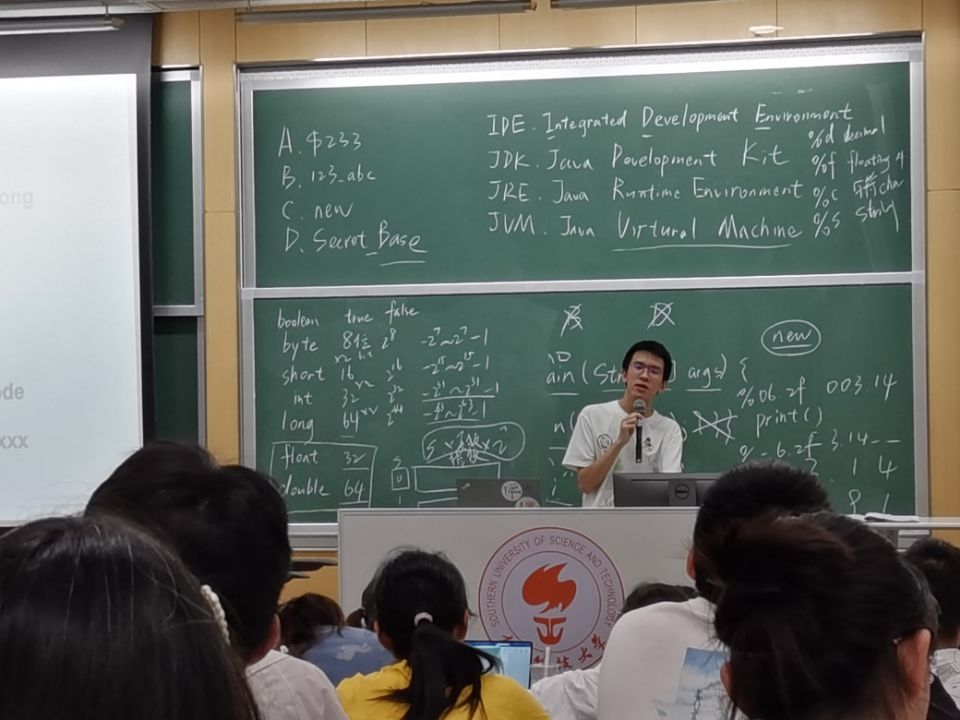 ong
ode
xxx
A. $233
B. 123_abc
C. new
D. Secret Base
IDE. Integrated Development Environment
JDK. Java Development Kit
JRE. Java Runtime Environment
JVM. Java Virtural Machine
%d decimal
%f floating
%c char
%s string
boolean true false
byte 8位 2^8 -2^7~2^7-1
×2 bit
short 16 2^16 -2^15~2^15-1
×2
int 32 2^32 -2^31~2^31-1
×2
long 64 2^64 -2^63~2^63-1
float 32
double 64
ain(Str ] args) {
new
%06.2f 003.14
print()
%-6.2f 3.14--
DELL
SOUTHERN UNIVERSITY OF SCIENCE AND TECHNOLOGY